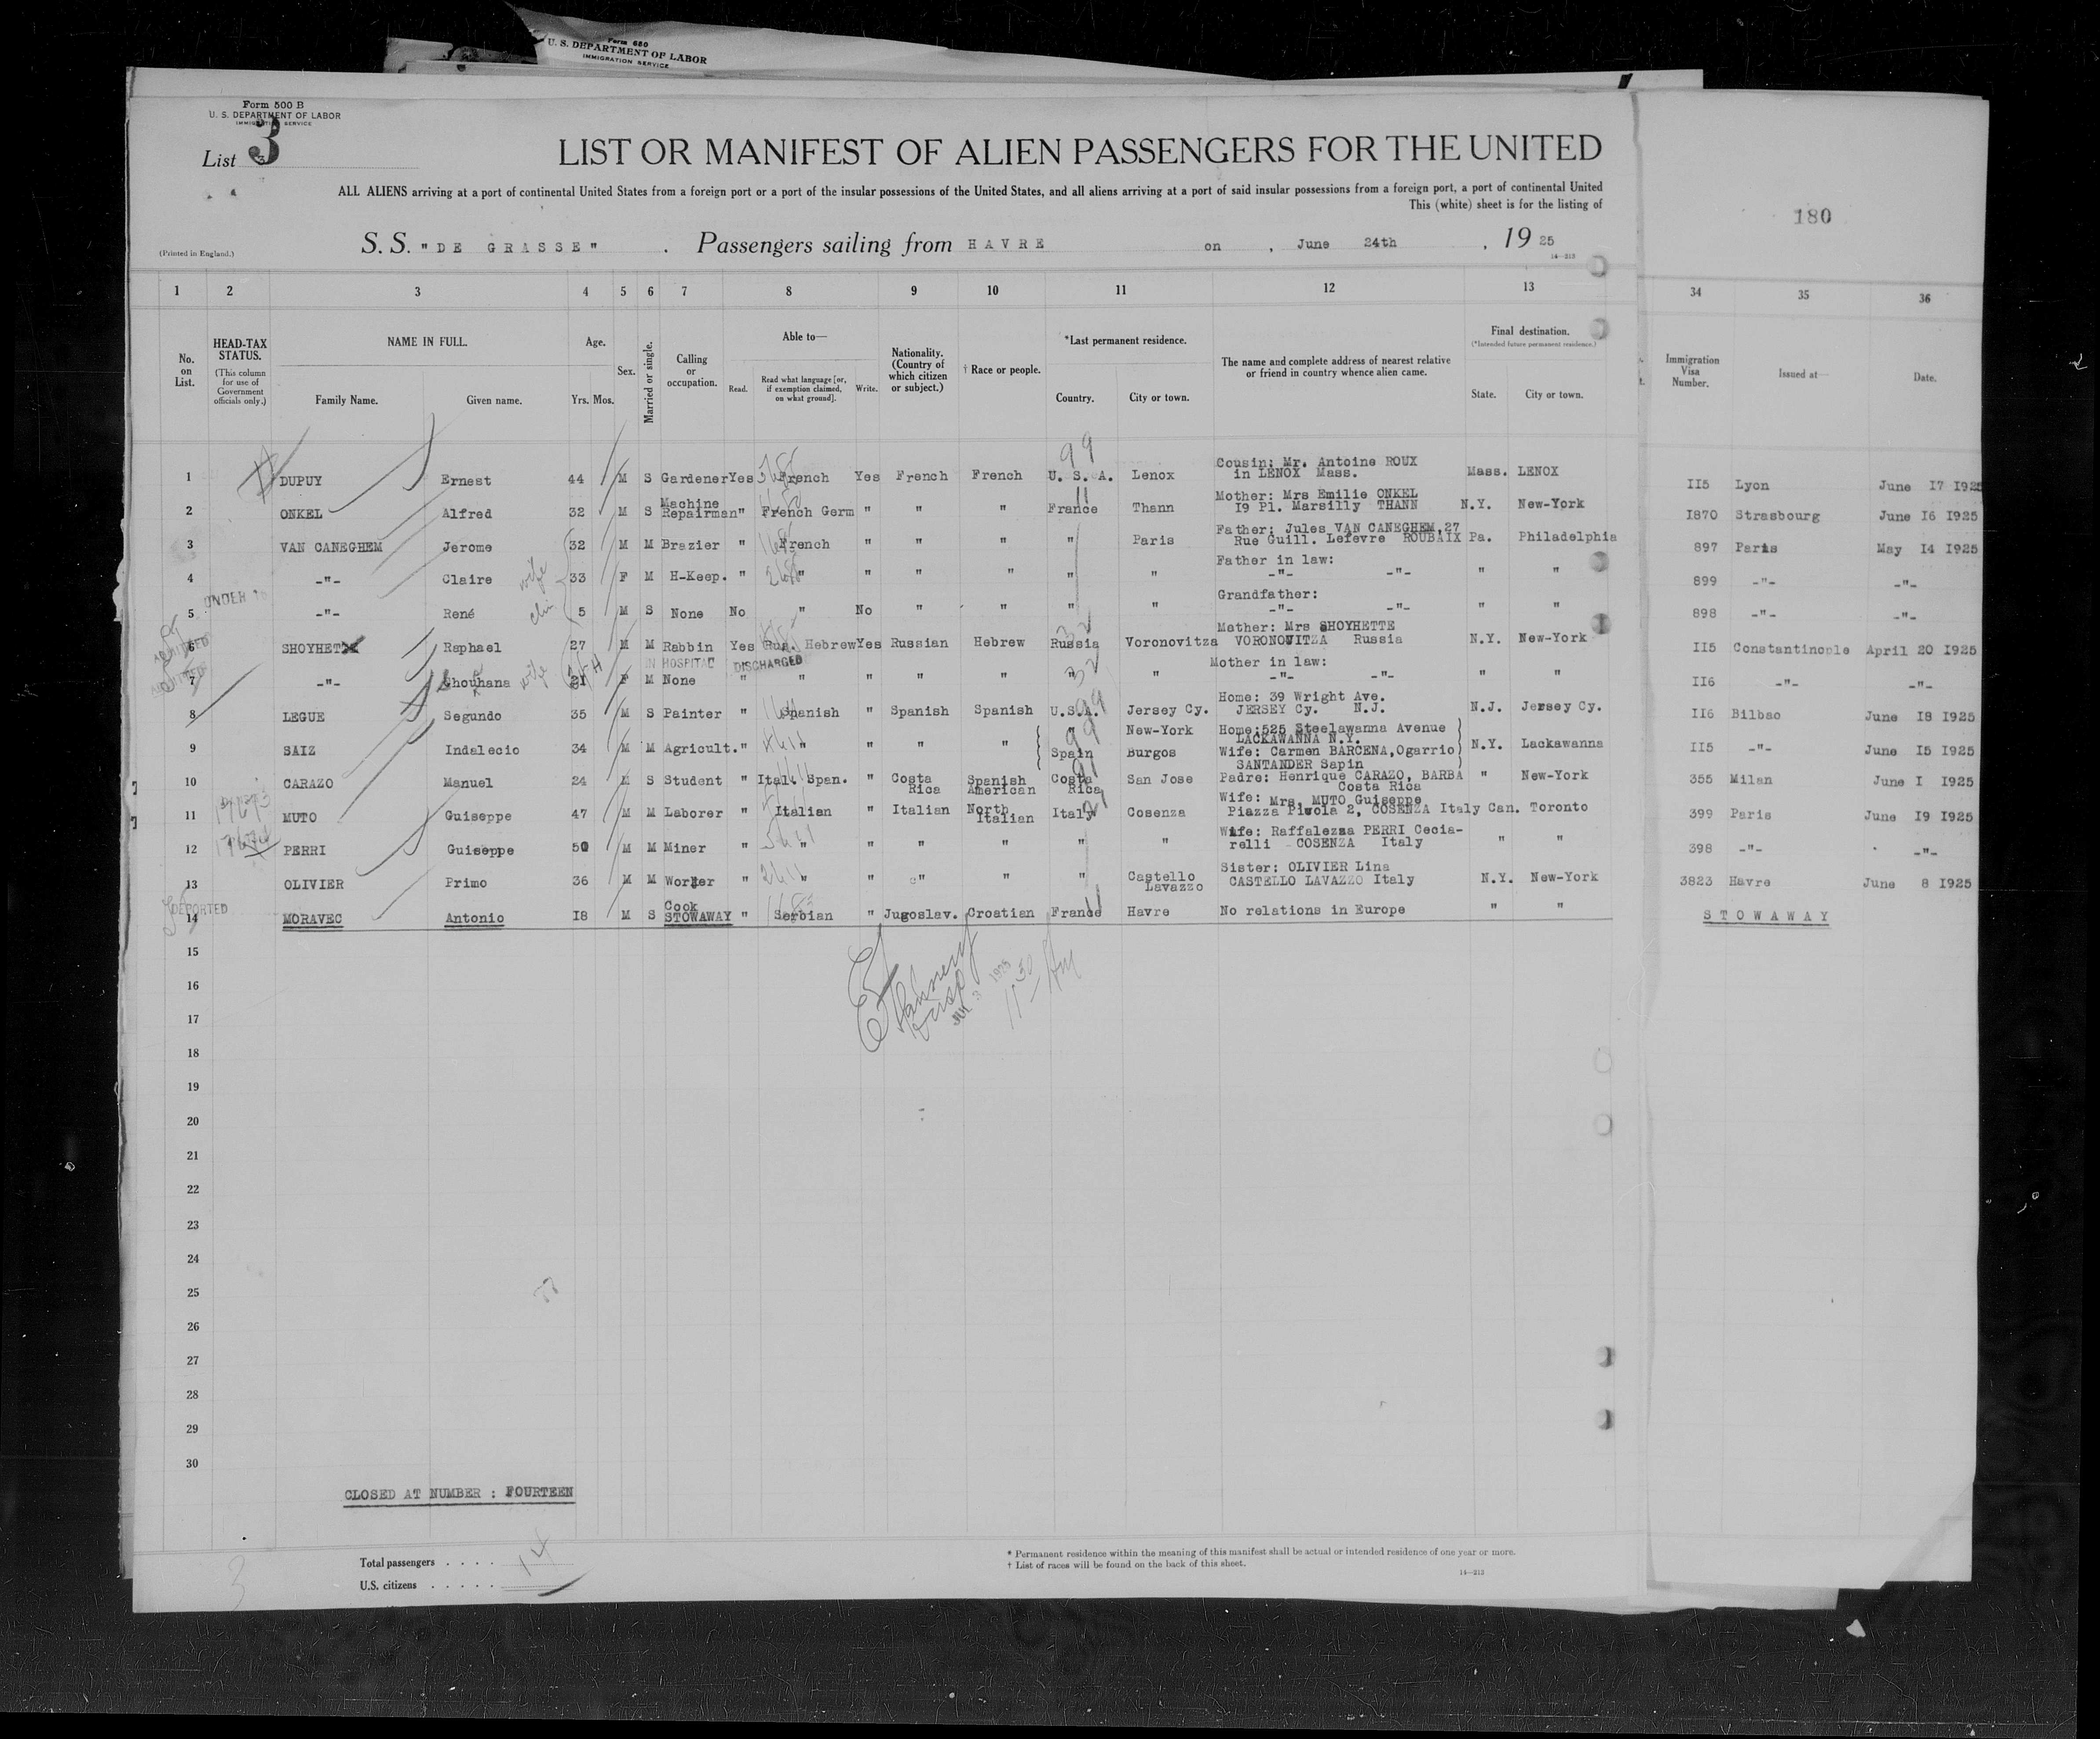 Form 680
U. S. DEPARTMENT OF LABOR
IMMIGRATION SERVICE
Form 500 B
U. S. DEPARTMENT OF LABOR
IMMIGRATION SERVICE
List 3
3
LIST OR MANIFEST OF ALIEN PASSENGERS FOR THE UNITED
ALL ALIENS arriving at a port of continental United States from a foreign port or a port of the insular possessions of the United States, and all aliens arriving at a port of said insular possessions from a foreign port, a port of continental United
This (white) sheet is for the listing of
180
(Printed in England.)
S. S. "DE GRASSE" . Passengers sailing from HAVRE on , June 24th , 19 25
14—213
1 2 3 4 5 6 7 8 9 10 11 12 13 34 35 36
No. on List.
HEAD-TAX STATUS.
(This column for use of Government officials only.)
NAME IN FULL.
Family Name. Given name.
Age.
Yrs. Mos.
Sex.
Married or single.
Calling or occupation.
Able to—
Read. Read what language [or, if exemption claimed, on what ground]. Write.
Nationality. (Country of which citizen or subject.)
† Race or people.
*Last permanent residence.
Country. City or town.
The name and complete address of nearest relative or friend in country whence alien came.
Final destination.
(*Intended future permanent residence.)
State. City or town.
Immigration Visa Number.
Issued at—
Date.
99
1 DUPUY Ernest 44 M S Gardener Yes French Yes French French U. S. A. Lenox Cousin: Mr. Antoine ROUX in LENOX Mass. Mass. LENOX II5 Lyon June I7 I925
2 ONKEL Alfred 32 M S Machine Repairman " French Germ " " " France Thann Mother: Mrs Emilie ONKEL I9 Pl. Marsilly THANN N.Y. New-York I870 Strasbourg June I6 I925
3 VAN CANEGHEM Jerome 32 M M Brazier " French " " " " Paris Father: Jules VAN CANEGHEM,27 Rue Guill. Lefevre ROUBAIX Pa. Philadelphia 897 Paris May I4 I925
4 -"- Claire wife 33 F M H-Keep. " " " " " " " Father in law: -"- -"- " " 899 -"- -"-
UNDER
5 -"- René 5 M S None No " No " " " " Grandfather: -"- -"- " " 898 -"- -"-
ADMITTED
6 SHOYHET Raphael 27 M M Rabbin Yes Rus. Hebrew Yes Russian Hebrew Russia Voronovitza Mother: Mrs SHOYHETTE VORONOVITZA Russia N.Y. New-York II5 Constantinople April 20 I925
IN HOSPITAL DISCHARGED
7 -"- Chouhana wife 21 F M None " " " " " " " Mother in law: -"- -"- " " II6 -"- -"-
8 LEGUE Segundo 35 M S Painter " Spanish " Spanish Spanish U.S.A. Jersey Cy. Home: 39 Wright Ave. JERSEY Cy. N.J. N.J. Jersey Cy. II6 Bilbao June I8 I925
9 SAIZ Indalecio 34 M M Agricult. " " " " " " New-York Spain Burgos Home:525 Steelawanna Avenue LACKAWANNA N.Y. Wife: Carmen BARCENA,Ogarrio SANTANDER Sapin N.Y. Lackawanna II5 -"- June I5 I925
10 CARAZO Manuel 24 M S Student " Ital. Span. " Costa Rica Spanish American Costa Rica San Jose Padre: Henrique CARAZO, BARBA Costa Rica " New-York 355 Milan June I I925
11 MUTO Guiseppe 47 M M Laborer " Italian " Italian North Italian Italy Cosenza Wife: Mrs. MUTO Guiseppe Piazza Piwola 2, COSENZA Italy Can. Toronto 399 Paris June I9 I925
12 PERRI Guiseppe 50 M M Miner " " " " " " " Wife: Raffalezza PERRI Cecia- relli - COSENZA Italy " " 398 -"- -"-
13 OLIVIER Primo 36 M M Worker " " " " " " Castello Lavazzo Sister: OLIVIER Lina CASTELLO LAVAZZO Italy N.Y. New-York 3823 Havre June 8 I925
DEPORTED
14 MORAVEC Antonio I8 M S Cook STOWAWAY " Serbian " Jugoslav. Croatian France Havre No relations in Europe " " STOWAWAY
15
16
JUL 3 1925
11 30 AM
17
18
19
20
21
22
23
24
25
26
27
28
29
30
CLOSED AT NUMBER : FOURTEEN
Total passengers . . . . 14
U.S. citizens . . . . .
* Permanent residence within the meaning of this manifest shall be actual or intended residence of one year or more.
† List of races will be found on the back of this sheet.
14—213
3